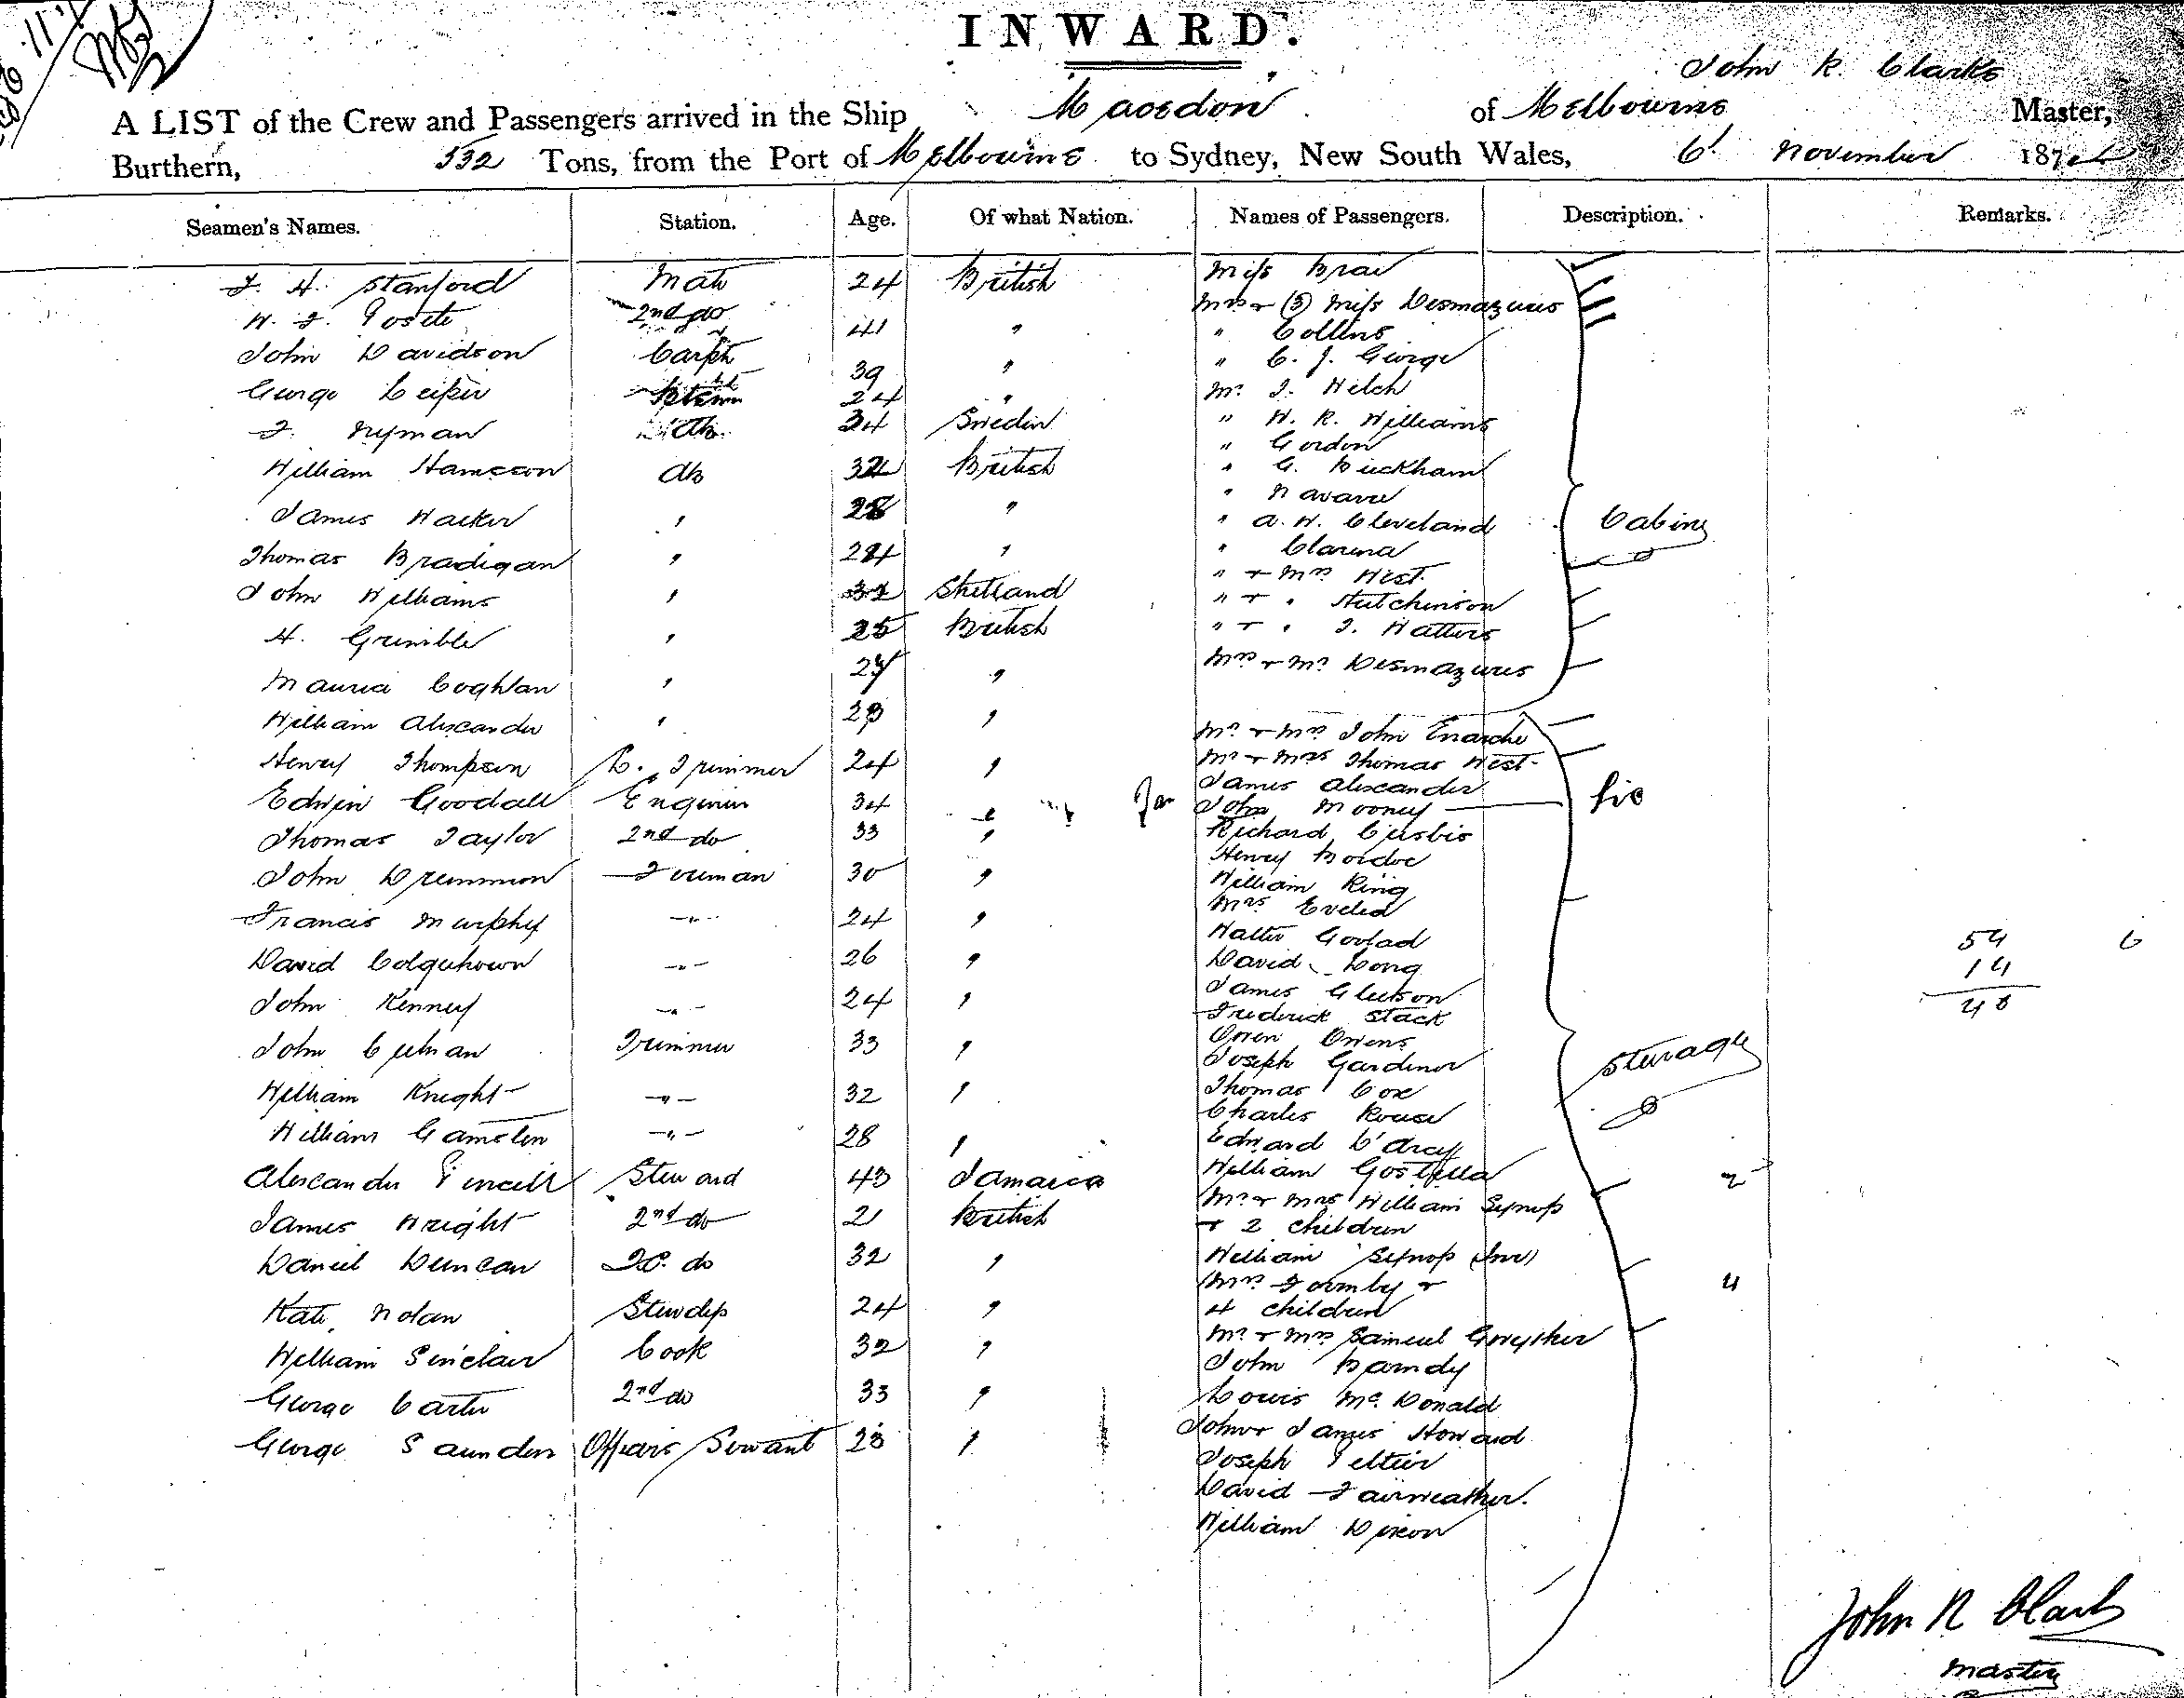 INWARD.
John R. Clarke
A LIST of the Crew and Passengers arrived in the Ship Macedon of Melbourne Master,
Burthern, 532 Tons, from the Port of Melbourne to Sydney, New South Wales, 6 November 187
Seamen's Names. Station. Age. Of what Nation. Names of Passengers. Description. Remarks.
Stanford Mate 24 British Miss
2nd do 41 " Mrs & (3) Miss Desmazures
" Collins
John Davidson Carptr 39 " " C. J. George
George Leiper 24 " Mr. Welch
Nyman 34 Sweden " W. R. Williams
" Gordon
William AB 32 British " G. Buckham
James Walker " 28 " " Navarre
" A. W. Cleveland Cabin
Thomas Bradigan " 24 " "
John Williams " Shetland " & Mrs West
" & " Hutchinson
H. Grimble " 25 British " & " Watters
Coghlan " " Mrs & Mr Desmazures
William Alexander " "
Mr & Mrs John
Henry Thompson Trimmer 24 " Mr & Mrs Thomas West
James Alexander
Edwin Goodall Engineer 34 " John Mooney
Thomas Taylor 2nd do 33 " Richard
Henry
John Drummon Fireman 30 " William King
Mrs
Francis Murphy -"- 24 " Walter
David Colquhoun -"- 26 " David Long 54 6
14
John Kenney -"- 24 " James Gleeson 40
Frederick Stack
John Trimmer 33 " Owen Owens
Joseph Gardiner Steerage
William Knight -"- 32 " Thomas Cox
Charles Rouse
William Gamslen -"- 28 " Edward D'Arcy
Alexander Steward 43 Jamaica William 2
James Wright 2nd do 21 British Mr & Mrs William Synop
& 2 children
Daniel Duncan do 32 " William Synop
Mrs Formby & 4
Kate Nolan Stewdss 24 " 4 children
Mr & Mrs Samuel Gwyther
William Sinclair Cook 32 " John
George Carter 2nd do 33 " Louis McDonald
John & James Howard
George Saunders Officers Servant 23 " Joseph Peltier
David Fairweather.
William Dixon
John R Clark
Master